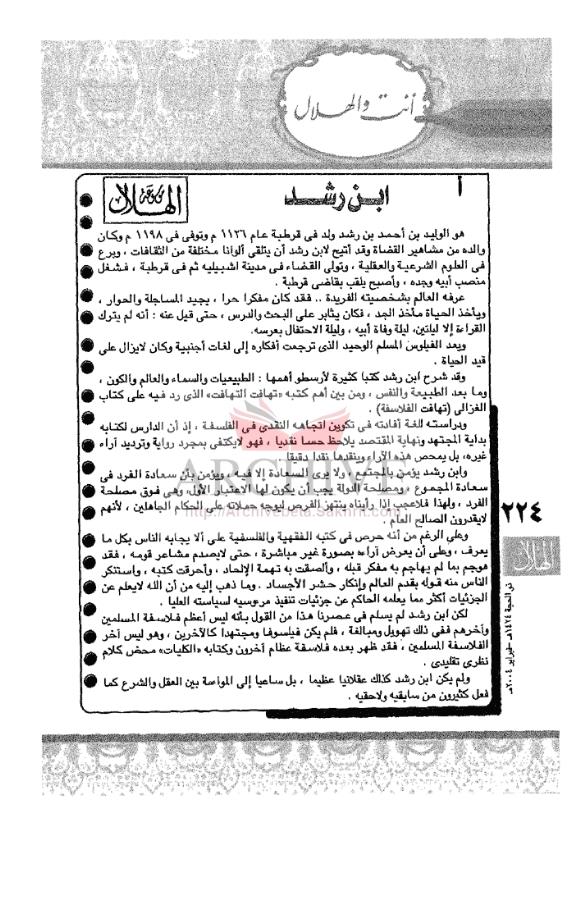 أنت والهلال
أ
ابن رشد
مجلة الهلال
هو الوليد بن أحمد بن رشد ولد فى قرطبة عام ١١٢٦ م وتوفى فى ١١٩٨ م وكان
والده من مشاهير القضاة وقد أتيح لابن رشد أن يتلقى ألوانا مختلفة من الثقافات ، وبرع
فى العلوم الشرعية والعقلية ، وتولى القضاء فى مدينة اشبيليه ثم فى قرطبة ، فشغل
منصب أبيه وجده ، وأصبح يلقب بقاضى قرطبة .
عرفه العالم بشخصيته الفريدة .. فقد كان مفكرا حرا ، يجيد المساجلة والحوار ،
ويأخذ الحياة مأخذ الجد ، فكان يثابر على البحث والدرس ، حتى قيل عنه : أنه لم يترك
القراءة إلا ليلتين، ليلة وفاة أبيه ، وليلة الاحتفال بعرسه.
ويعد الفيلوس المسلم الوحيد الذى ترجمت أفكاره إلى لغات أجنبية وكان لايزال على
قيد الحياة .
وقد شرح ابن رشد كتبا كثيرة لأرسطو أهمها : الطبيعيات والسماء والعالم والكون ،
وما بعد الطبيعة والنفس ، ومن بين أهم كتبه «تهافت التهافت» الذى رد فيه على كتاب
الغزالى (تهافت الفلاسفة) .
ودراسته للغة أفادته فى تكوين اتجاهه النقدى فى الفلسفة ، إذ أن الدارس لكتابه
بداية المجتهد ونهاية المقتصد يلاحظ حسا نقديا ، فهو لايكتفى بمجرد رواية وترديد آراء
غيره، بل يمحص هذه الآراء وينقدها نقدا دقيقا .
وابن رشد يؤمن بالمجتمع ولا يرى السعادة إلا فيه، ويؤمن بأن سعادة الفرد فى
سعادة المجموع ، ومصلحة الدولة يجب أن يكون لها الاعتبار الأول، وهى فوق مصلحة
الفرد ، ولهذا فلاعجب إذا رأيناه ينتهز الفرص ليوجه حملاته على الحكام الجاهلين ، لأنهم
لايقدرون الصالح العام .
وعلى الرغم من أنه حرص فى كتبه الفقهية والفلسفية على ألا يجابه الناس بكل ما
يعرف ، وعلى أن يعرض آراءه بصورة غير مباشرة ، حتى لايصدم مشاعر قومه ، فقد
هوجم بما لم يهاجم به مفكر قبله ، وألصقت به تهمة الإلحاد ، وأحرقت كتبه ، واستنكر
الناس منه قوله بقدم العالم وإنكار حشر الأجساد . وما ذهب إليه من أن الله لايعلم عن
الجزئيات أكثر مما يعلمه الحاكم عن جزئيات تنفيذ مرءوسيه لسياسته العليا .
لكن ابن رشد لم يسلم فى عصرنا هذا من القول بأنه ليس أعظم فلاسفة المسلمين
وأخرهم ففى ذلك تهويل ومبالغة ، فلم يكن فيلسوفا ومجتهدا كالآخرين ، وهو ليس آخر
الفلاسفة المسلمين ، فقد ظهر بعده فلاسفة عظام أخرون وكتابه «الكليات» محض كلام
نظرى تقليدى .
ولم يكن ابن رشد كذلك عقلانيا عظيما ، بل ساعيا إلى المواسة بين العقل والشرع كما
فعل كثيرون من سابقيه ولاحقيه .
ARCHIVE
http://Archivebeta.Sakhrit.com
٢٢٤
الهلال
ذو الحجة ١٤٢٤هـ - فبراير ٢٠٠٤مـ